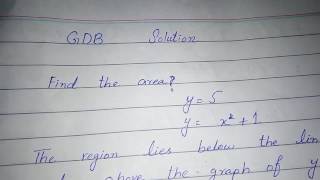 GDB Solution
Find the area?
y = 5
y = x² + 1
The region lies below the lin
above the graph of y